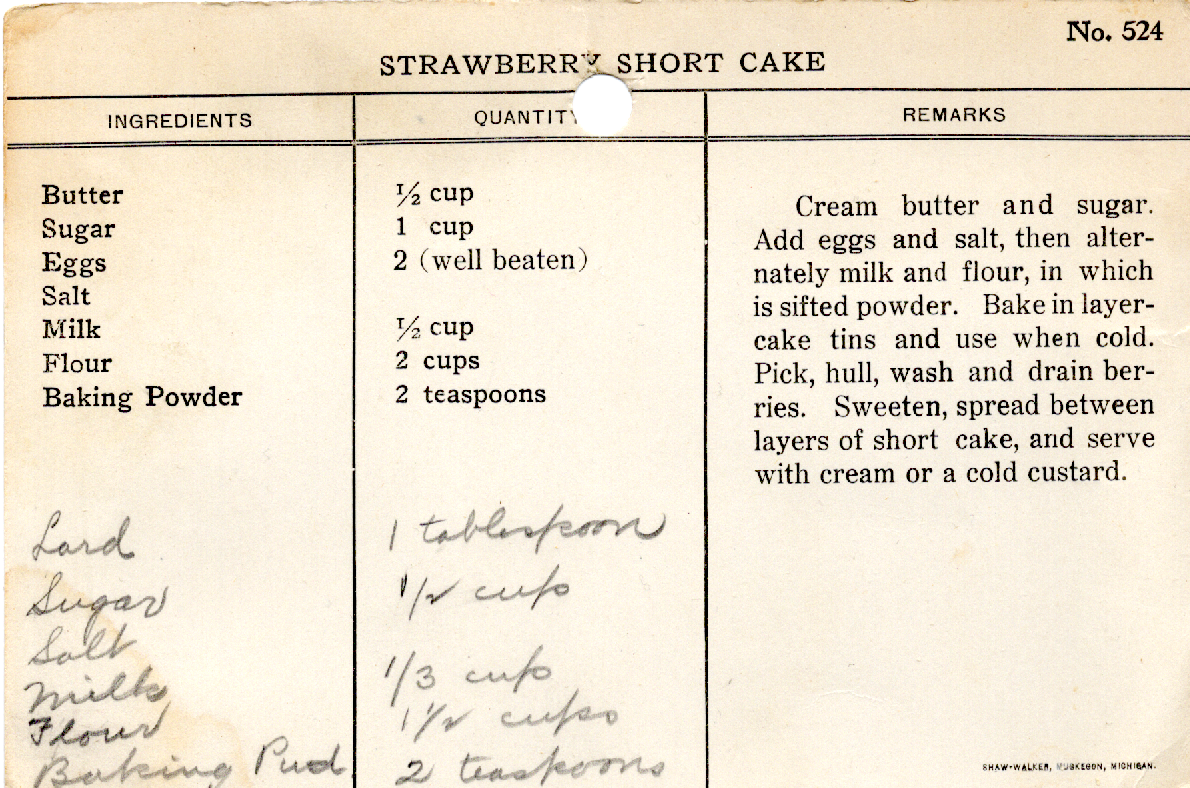 No. 524
STRAWBERRY SHORT CAKE
INGREDIENTS QUANTITY REMARKS
Butter ½ cup
Sugar 1 cup
Eggs 2 (well beaten)
Salt
Milk ½ cup
Flour 2 cups
Baking Powder 2 teaspoons
Cream butter and sugar.
Add eggs and salt, then alter-
nately milk and flour, in which
is sifted powder. Bake in layer-
cake tins and use when cold.
Pick, hull, wash and drain ber-
ries. Sweeten, spread between
layers of short cake, and serve
with cream or a cold custard.
Lard 1 tablespoon
Sugar 1/2 cup
Salt
Milk 1/3 cup
Flour 1 1/2 cups
Baking Pwd 2 teaspoons
SHAW-WALKER, MUSKEGON, MICHIGAN.